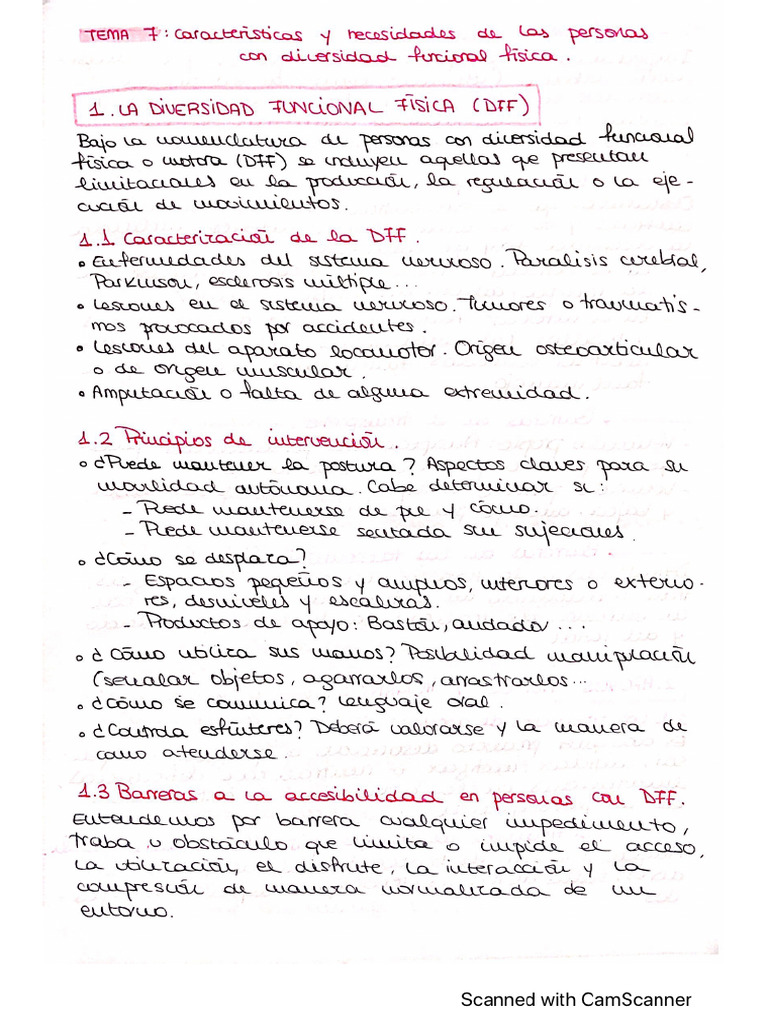 TEMA 7: características y necesidades de las personas
con diversidad funcional física.
1. LA DIVERSIDAD FUNCIONAL FÍSICA (DFF)
Bajo la nomenclatura de personas con diversidad funcional
física o motora (DFF) se incluyen aquellas que presentan
limitaciones en la producción, la regulación o la eje-
cución de movimientos.
1.1 Caracterización de la DFF.
• Enfermedades del sistema nervioso. Paralisis cerebral,
Parkinson, esclerosis múltiple...
• Lesiones en el sistema nervioso. Tumores o traumatis-
mos provocados por accidentes.
• Lesiones del aparato locomotor. Origen osteoarticular
o de origen muscular.
• Amputación o falta de alguna extremidad.
1.2 Principios de intervención.
• ¿Puede mantener la postura? Aspectos claves para su
movilidad autónoma. Cabe determinar si:
- Puede mantenerse de pie y cómo.
- Puede mantenerse sentada sin sujeciones.
• ¿Cómo se desplaza?
- Espacios pequeños y amplios, interiores o exterio-
res, desniveles y escaleras.
- Productos de apoyo: Bastón, andador ...
• ¿Cómo utiliza sus manos? Posibilidad manipulación
(señalar objetos, agarrarlos, arrastrarlos...
• ¿Cómo se comunica? Lenguaje oral.
• ¿Controla esfínteres? Deberá valorarse y la manera de
como atenderse.
1.3 Barreras a la accesibilidad en personas con DFF.
Entendemos por barrera cualquier impedimento,
traba u obstáculo que limita o impide el acceso,
la utilización, el disfrute, la interacción y la
compresión de manera normalizada de un
entorno.
Scanned with CamScanner